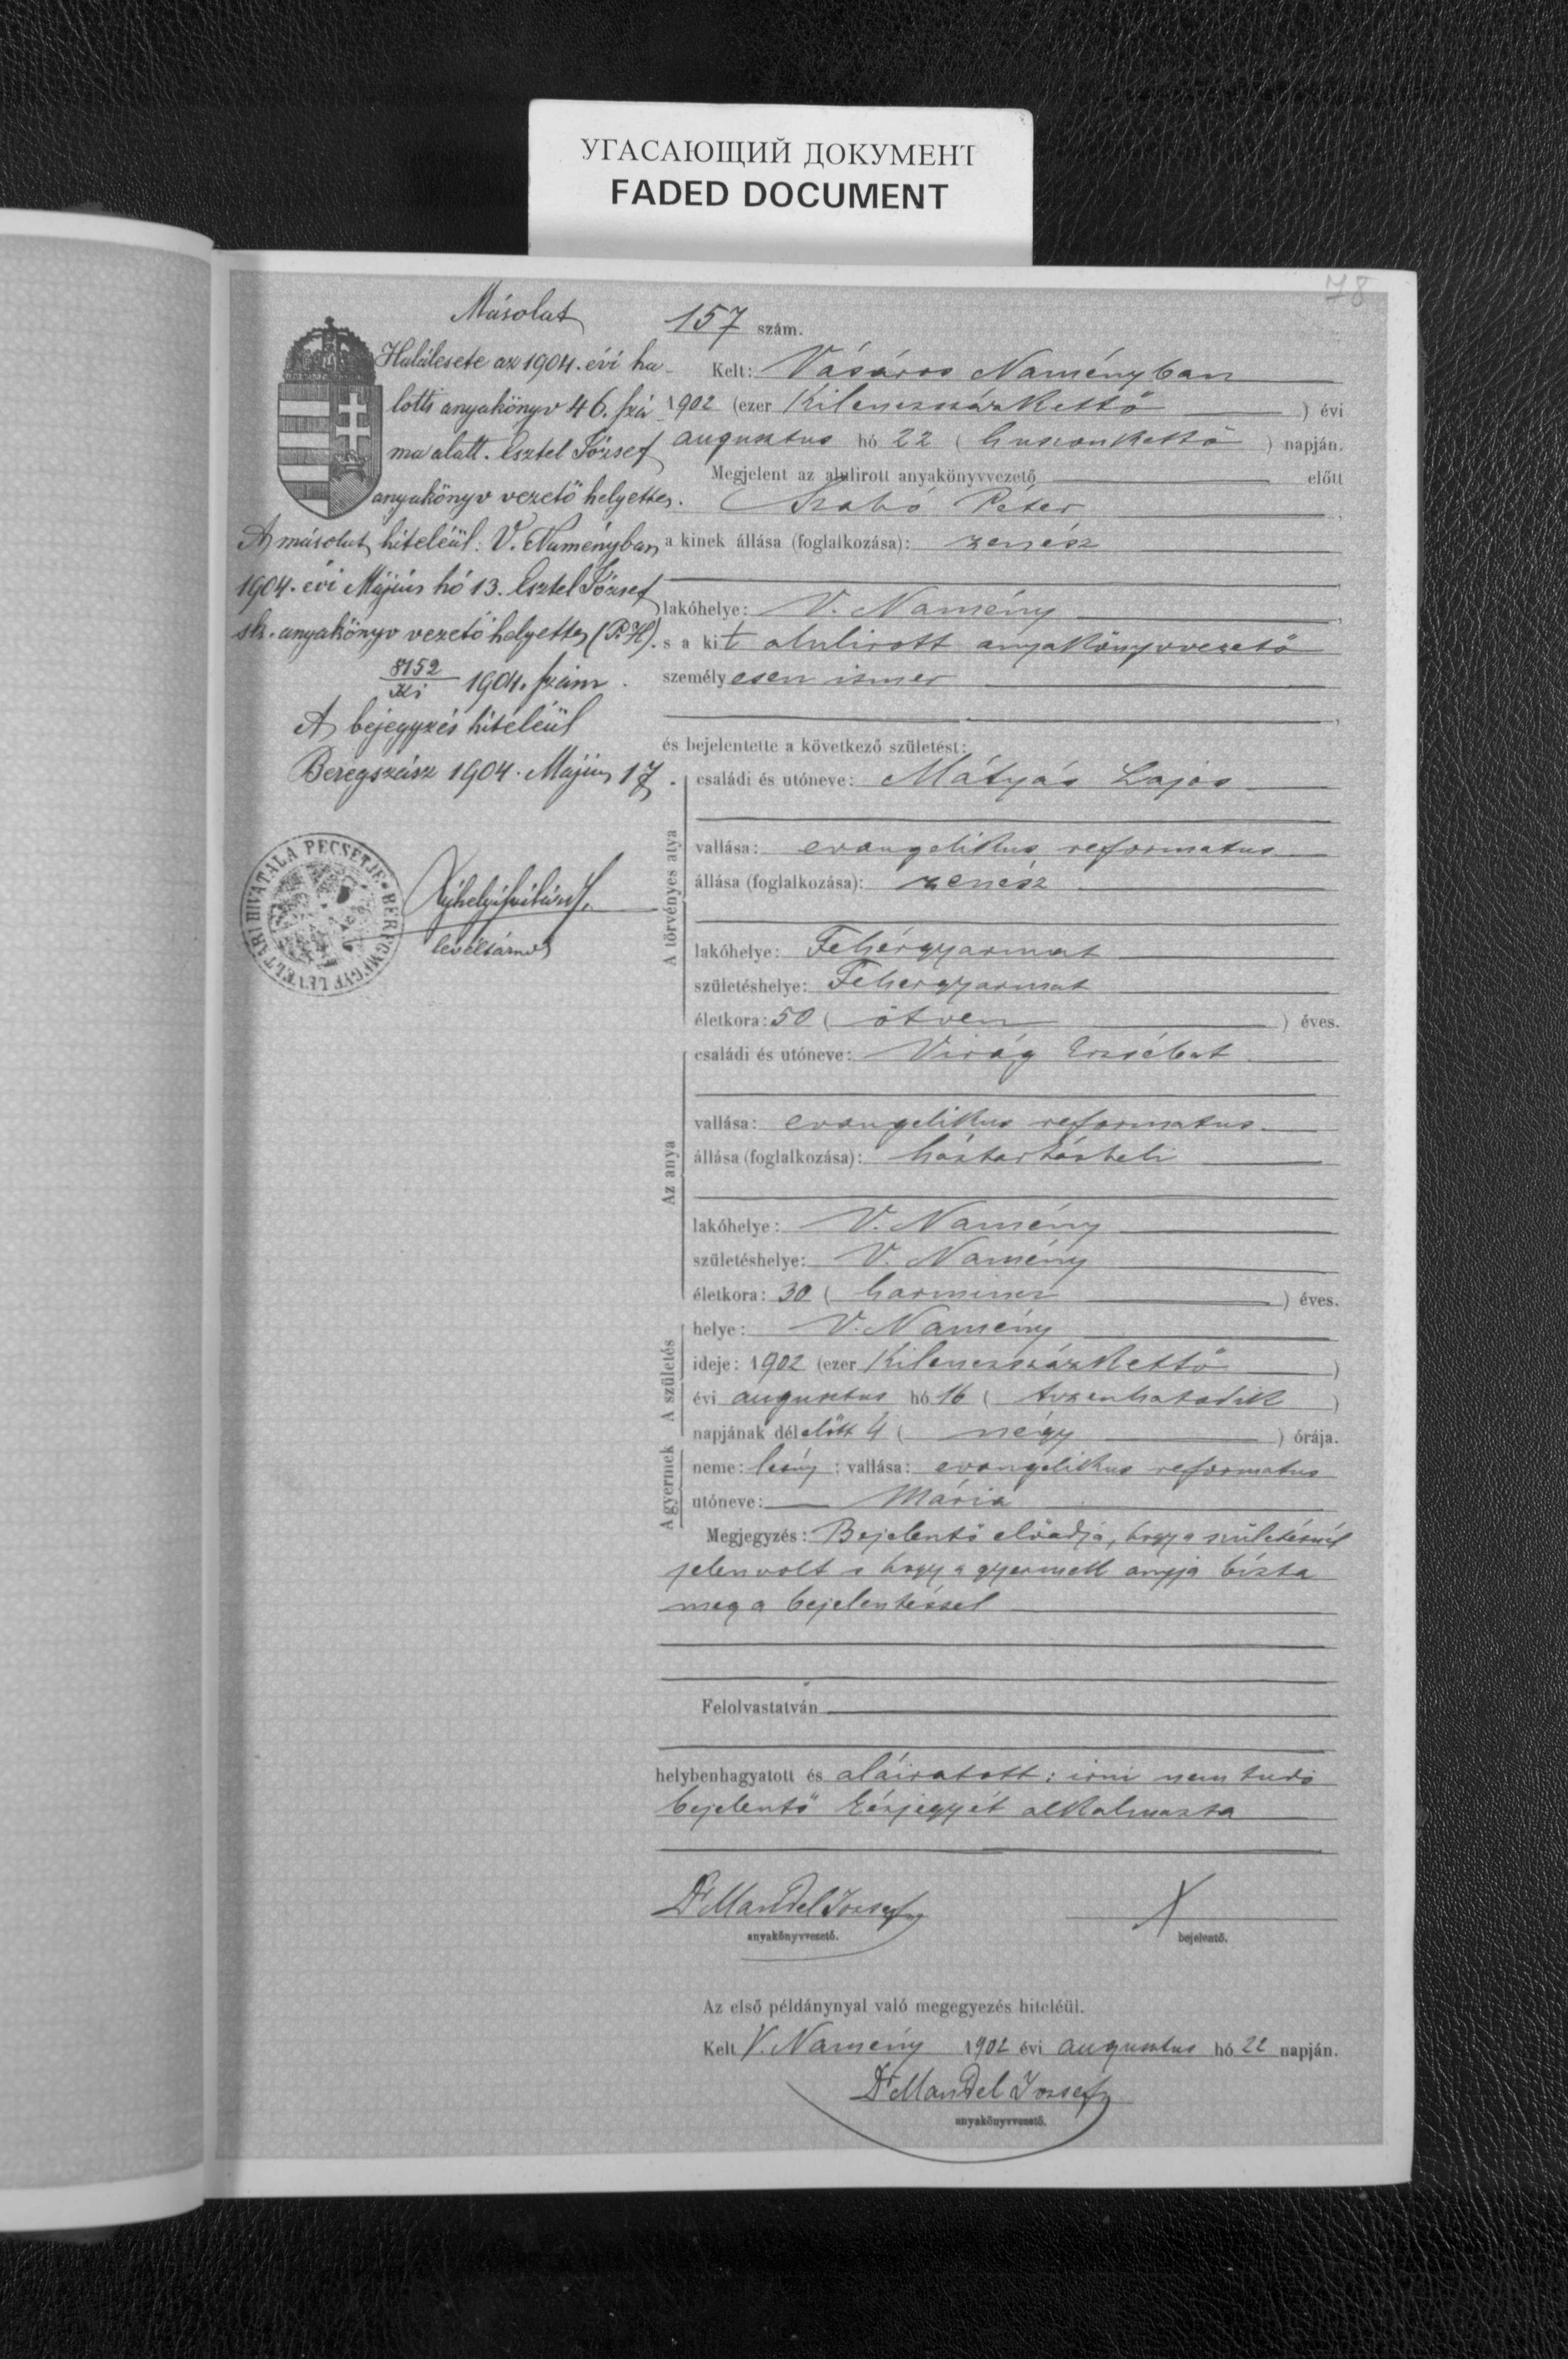 УГАСАЮЩИЙ ДОКУМЕНТ
FADED DOCUMENT
78
Másolat
Halálesete az 1904. évi ha-
lotti anyakönyv 46. szá-
ma alatt. Esztel József
anyakönyv vezető helyettes.
A másolat hiteléül: V. Naményban
1904. évi Május hó 13. Esztel József
sk. anyakönyv vezető helyettes (P.H).
8152
1904. szám.
A bejegyzés hiteléül
Beregszász 1904. Május 17.
BEREGMEGYE LEVÉLTÁRI HIVATALA PECSÉTJE
levéltárnok
157 szám.
Kelt: Vásáros Naményban
1902 (ezer kilencszázkettő) évi
augusztus hó 22 (huszonkettő) napján.
Megjelent az alulirott anyakönyvvezető előtt
Szabó Péter,
a kinek állása (foglalkozása): zenész
lakóhelye: V. Namény,
s a kit alulirott anyakönyvvezető
személyesen ismer
és bejelentette a következő születést:
A törvényes atya
családi és utóneve: Mátyás Lajos
vallása: evangelikus reformatus
állása (foglalkozása): zenész
lakóhelye: Fehérgyarmat
születéshelye: Fehergyarmat
életkora: 50 (ötven) éves.
Az anya
családi és utóneve: Virág Erzsébet
vallása: evangelikus reformatus
állása (foglalkozása): háztartásbeli
lakóhelye: V. Namény
születéshelye: V. Namény
életkora: 30 (harmincz) éves.
A születés
helye: V. Namény
ideje: 1902 (ezer kilencszázkettő)
évi augusztus hó 16 (tizenhatodik)
napjának délelőtt 4 (négy) órája.
A gyermek
neme: leány; vallása: evangélikus reformatus
utóneve: Mária
Megjegyzés: Bejelentő előadja, hogy a születésnél
jelen volt s hogy a gyermek anyja bízta
meg a bejelentéssel
Felolvastatván
helybenhagyatott és aláiratott: irni nem tudó
bejelentő kézjegyét alkalmazta
Dr Mandel József
anyakönyvvezető.
X
bejelentő.
Az első példánynyal való megegyezés hiteléül.
Kelt V. Namény 1902 évi augusztus hó 22 napján.
Dr Mandel József
anyakönyvvezető.